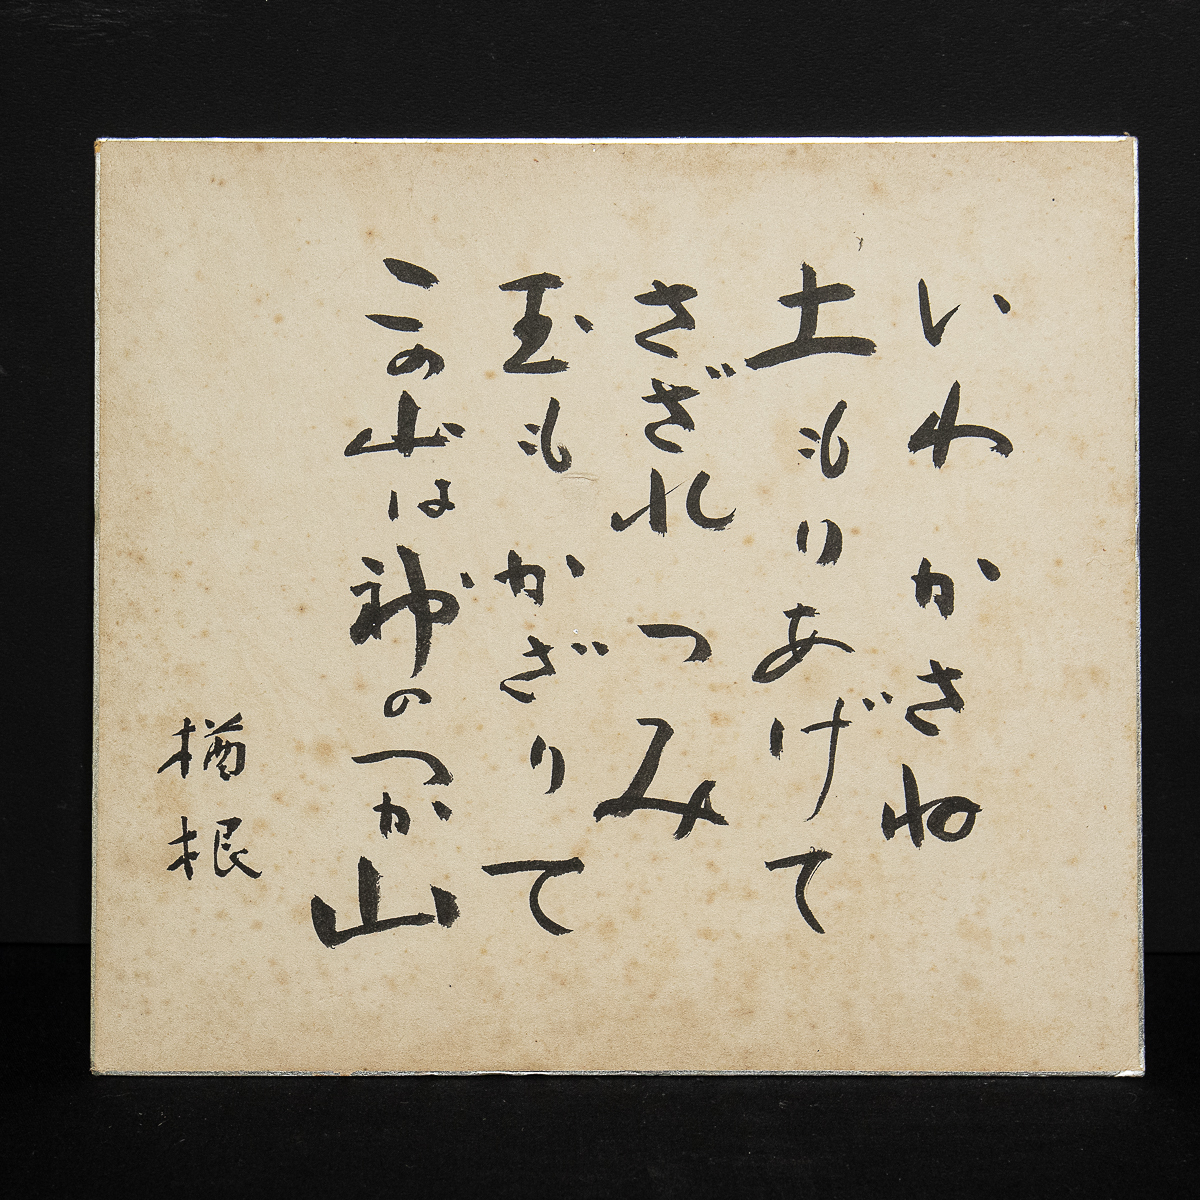 いわかさね
土もりあげて
さざれつみ
玉もかざりて
この山は神のつか山
楢根